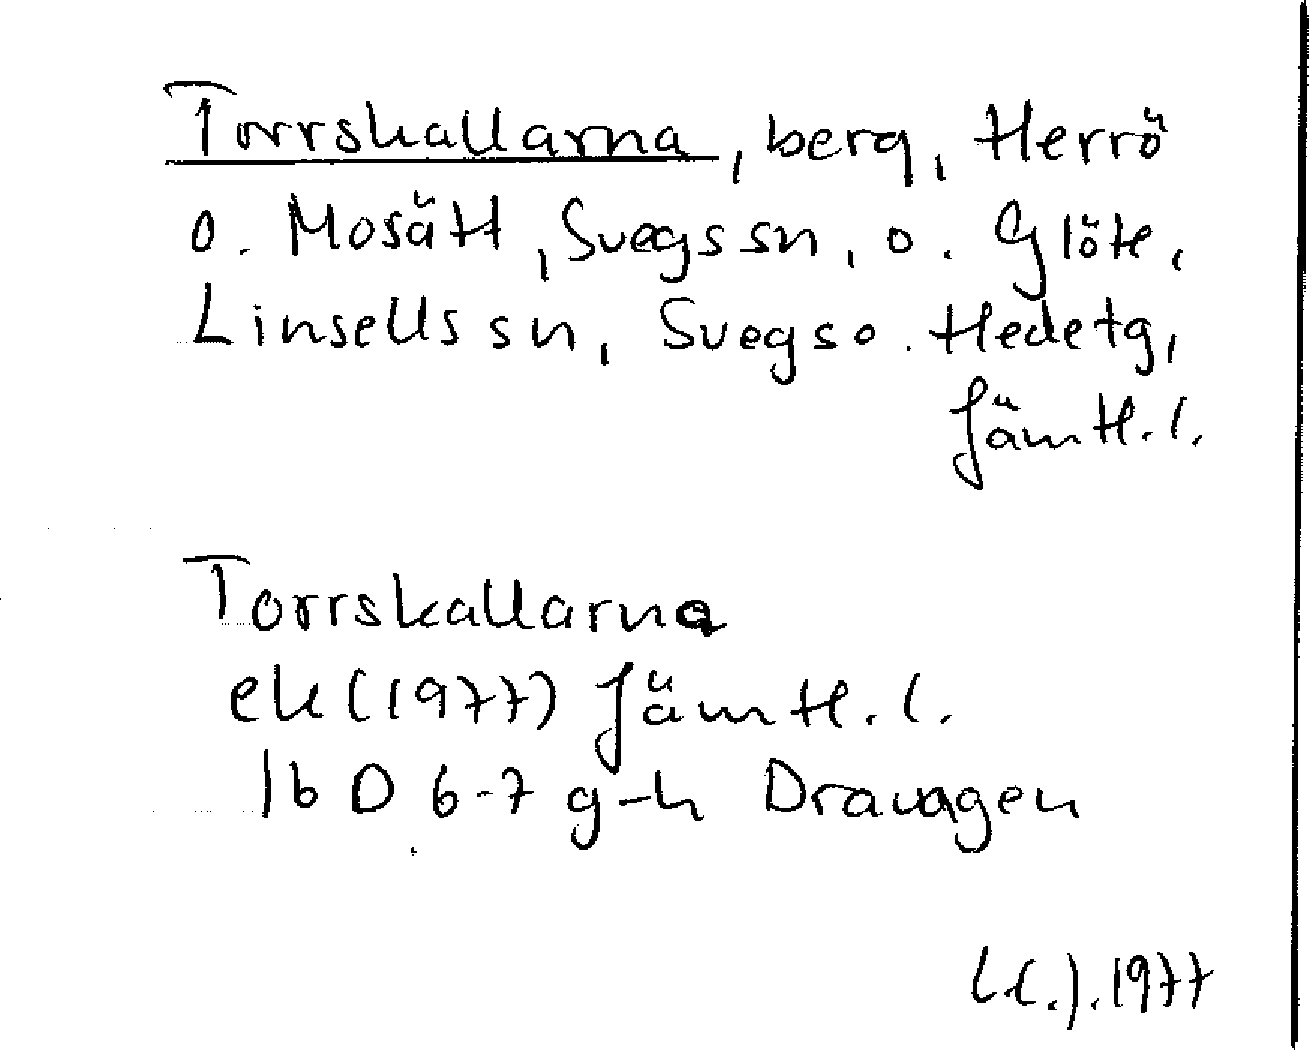 Torrskallarna, berg, Herrö
o. Mosätt, Svegs sn, o. Glöte,
Linsells sn, Svegs o. Hede tg,
Jämtl. l.
Torrskallarna
ek (1977) Jämtl. l.
16 D 6-7 g-h Dravagen
1977